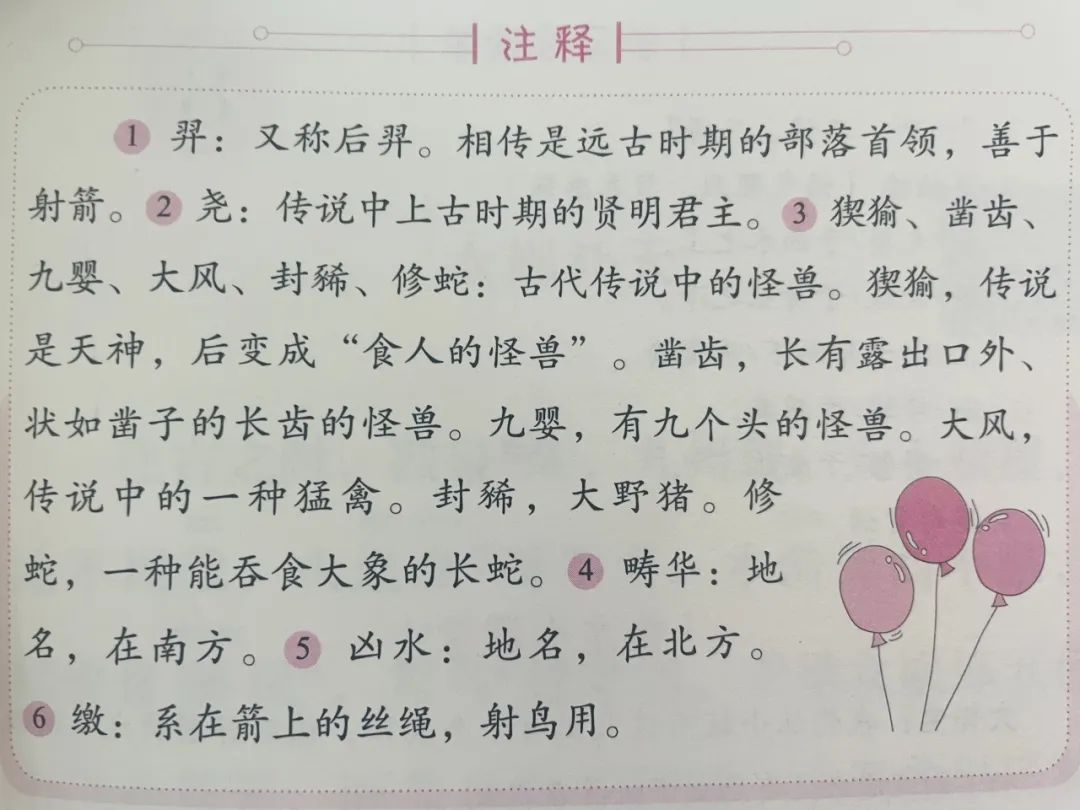 注释
1 羿：又称后羿。相传是远古时期的部落首领，善于
射箭。2 尧：传说中上古时期的贤明君主。3 猰貐、凿齿、
九婴、大风、封豨、修蛇：古代传说中的怪兽。猰貐，传说
是天神，后变成“食人的怪兽”。凿齿，长有露出口外、
状如凿子的长齿的怪兽。九婴，有九个头的怪兽。大风，
传说中的一种猛禽。封豨，大野猪。修
蛇，一种能吞食大象的长蛇。4 畴华：地
名，在南方。5 凶水：地名，在北方。
6 缴：系在箭上的丝绳，射鸟用。